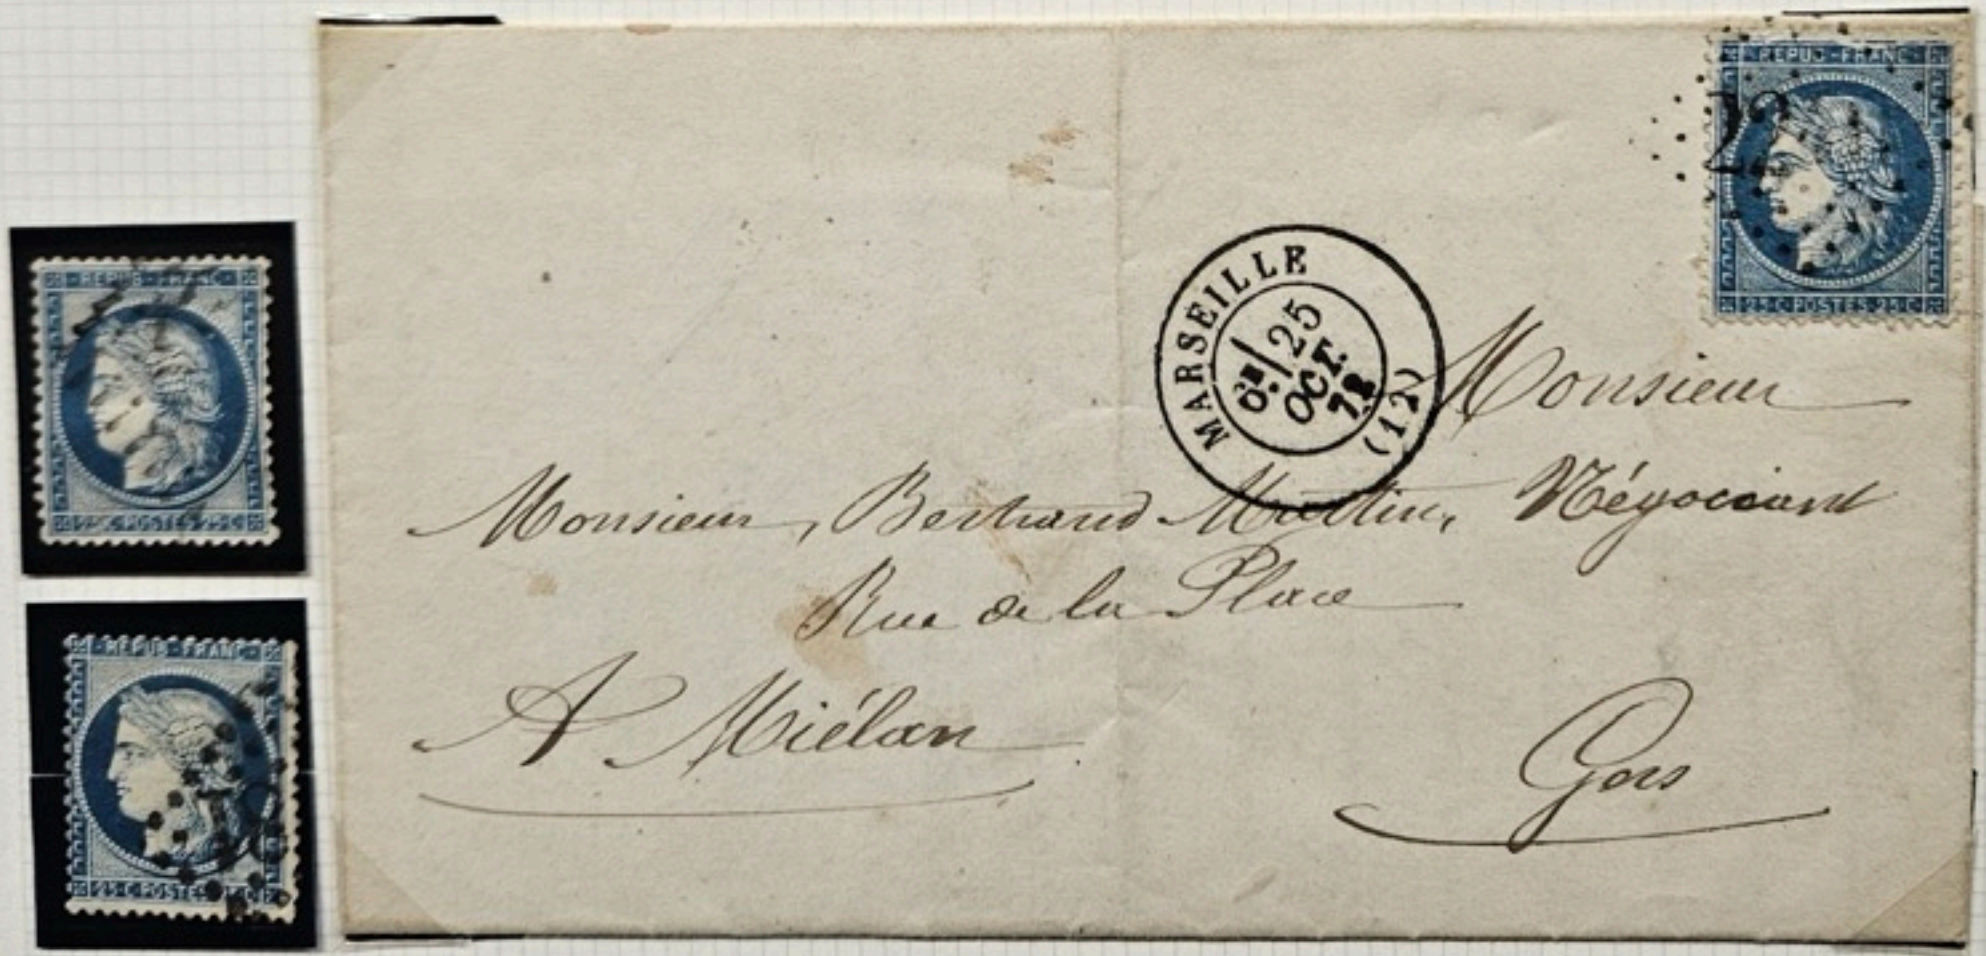 REPUB-FRANC
25·C·POSTES·25·C
REPUB-FRANC
25·C·POSTES
REPUB-FRANC
22
25·C·POSTES·25·C
MARSEILLE
25
OCT.
72
(12)
Monsieur
Monsieur, Bertrand Martin, Négociant
Rue de la Place
A Miélan
Gers